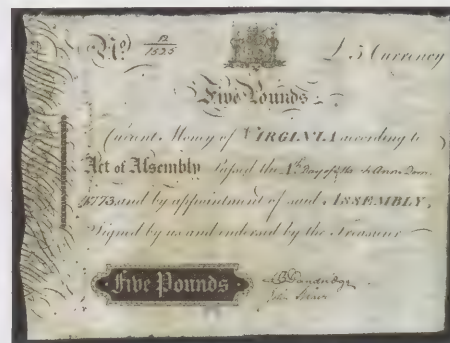 No. 12
1525
£5 Currency
Five Pounds
Current Money of VIRGINIA according to
Act of Assembly passed the 4th Day of Anno Dom.
1773 and by appointment of said ASSEMBLY,
Signed by us and endorsed by the Treasurer
Five Pounds
Dandridge
John Blair